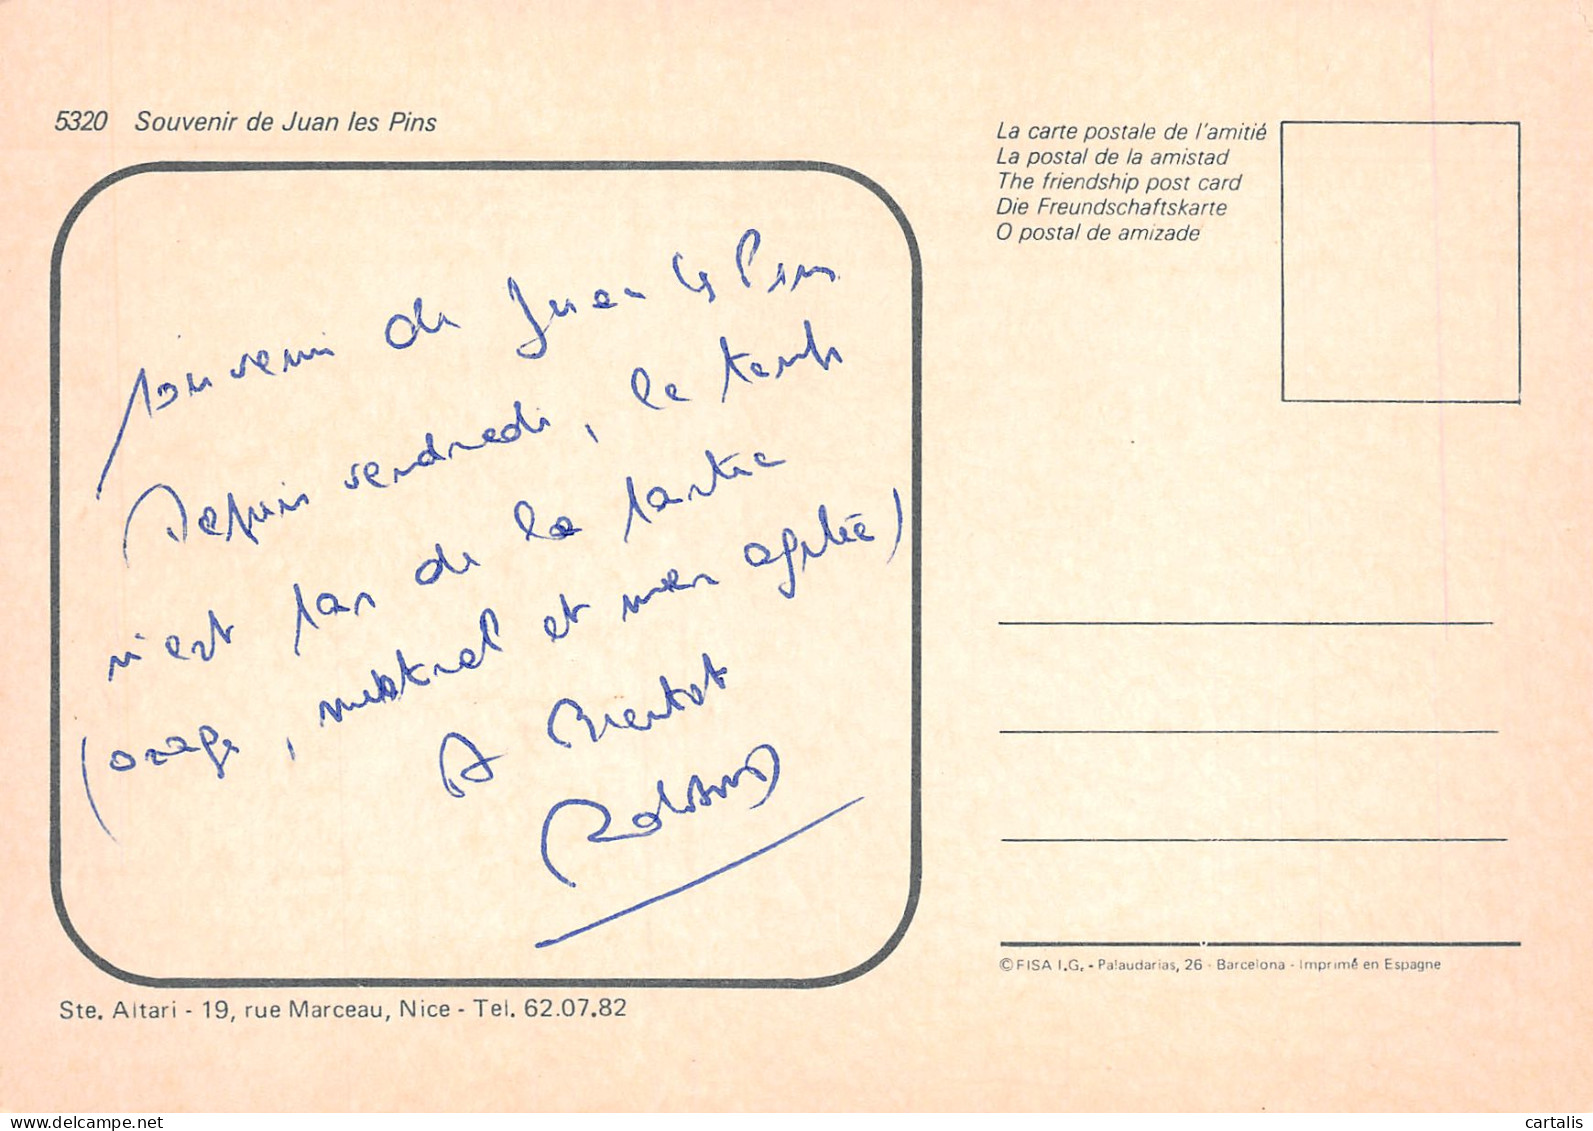 5320 Souvenir de Juan les Pins
La carte postale de l'amitié
La postal de la amistad
The friendship post card
Die Freundschaftskarte
O postal de amizade
Souvenir de Juan les Pins
Depuis vendredi, le temps
n'est pas de la partie
(orage, mistral et mer agitée)
A Bientot
©FISA I.G. - Palaudarias, 26 - Barcelona - Imprimé en Espagne
Ste. Altari - 19, rue Marceau, Nice - Tel. 62.07.82
delcampe.net
cartalis